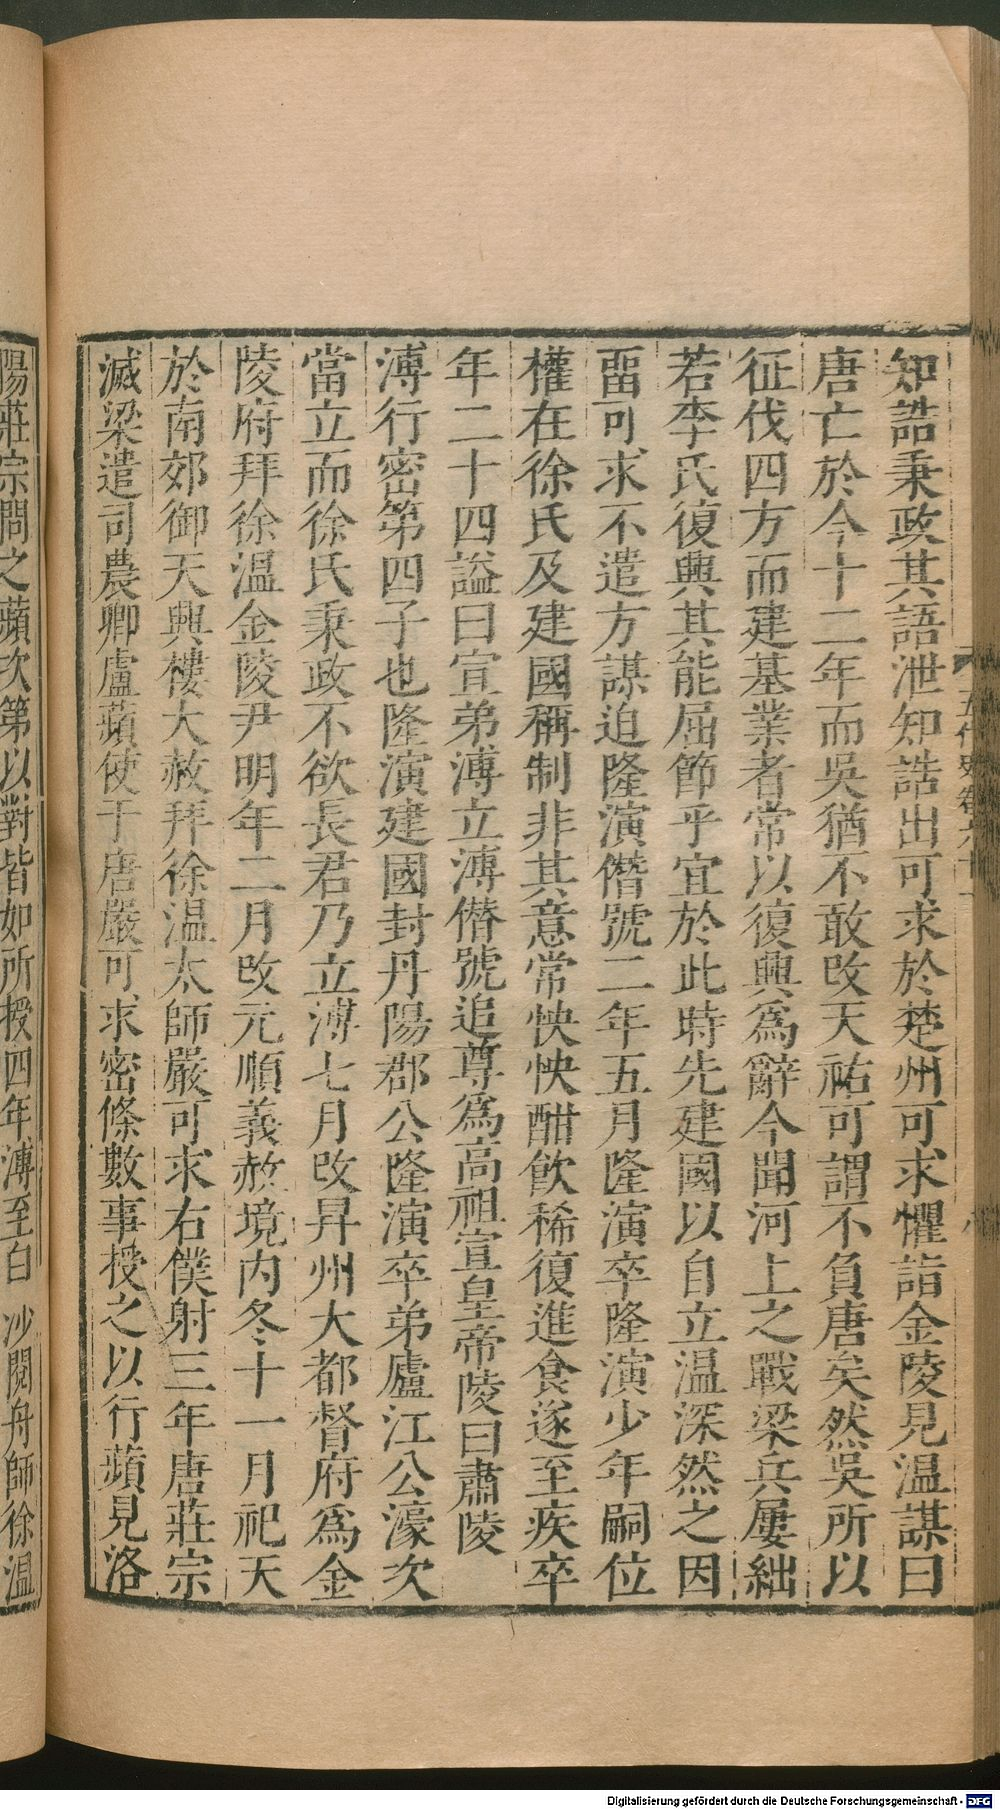 知誥秉政其語泄知誥出可求於楚州可求懼詣金陵見温謀曰
唐亡於今十二年而吳猶不敢攺天祐可謂不負唐矣然吳所以
征伐四方而建基業者常以復興爲辭今聞河上之戰梁兵屢絀
若李氏復興其能屈節乎宜於此時先建國以自立温深然之因
畱可求不遣方謀迫隆演僭號二年五月隆演卒隆演少年嗣位
權在徐氏及建國稱制非其意常怏怏酣飲稀復進食遂至疾卒
年二十四謚曰宣弟溥立溥僭號追尊爲高祖宣皇帝陵曰肅陵
溥行密第四子也隆演建國封丹陽郡公隆演卒弟廬江公濛次
當立而徐氏秉政不欲長君乃立溥七月攺昇州大都督府爲金
陵府拜徐温金陵尹明年二月攺元順義赦境内冬十一月祀天
於南郊御天興樓大赦拜徐温太師嚴可求右僕射三年唐莊宗
滅梁遣司農卿盧蘋使于唐嚴可求密條數事授之以行蘋見洛
陽莊宗問之蘋次第以對皆如所授四年溥至白沙閱舟師徐温
五代史卷六十一
八
Digitalisierung gefördert durch die Deutsche Forschungsgemeinschaft - DFG